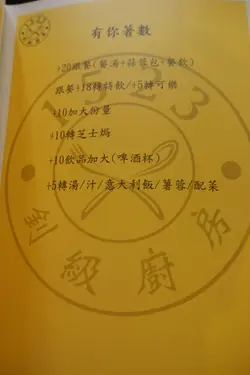 有你著數
+20跟餐(餐湯+蒜蓉包+餐飲)
跟餐+18轉特飲/+5轉可樂
+10加大份量
+10轉芝士焗
+10飲品加大(啤酒杯)
+5轉湯/汁/意大利飯/薯蓉/配菜
1523
劍級廚房